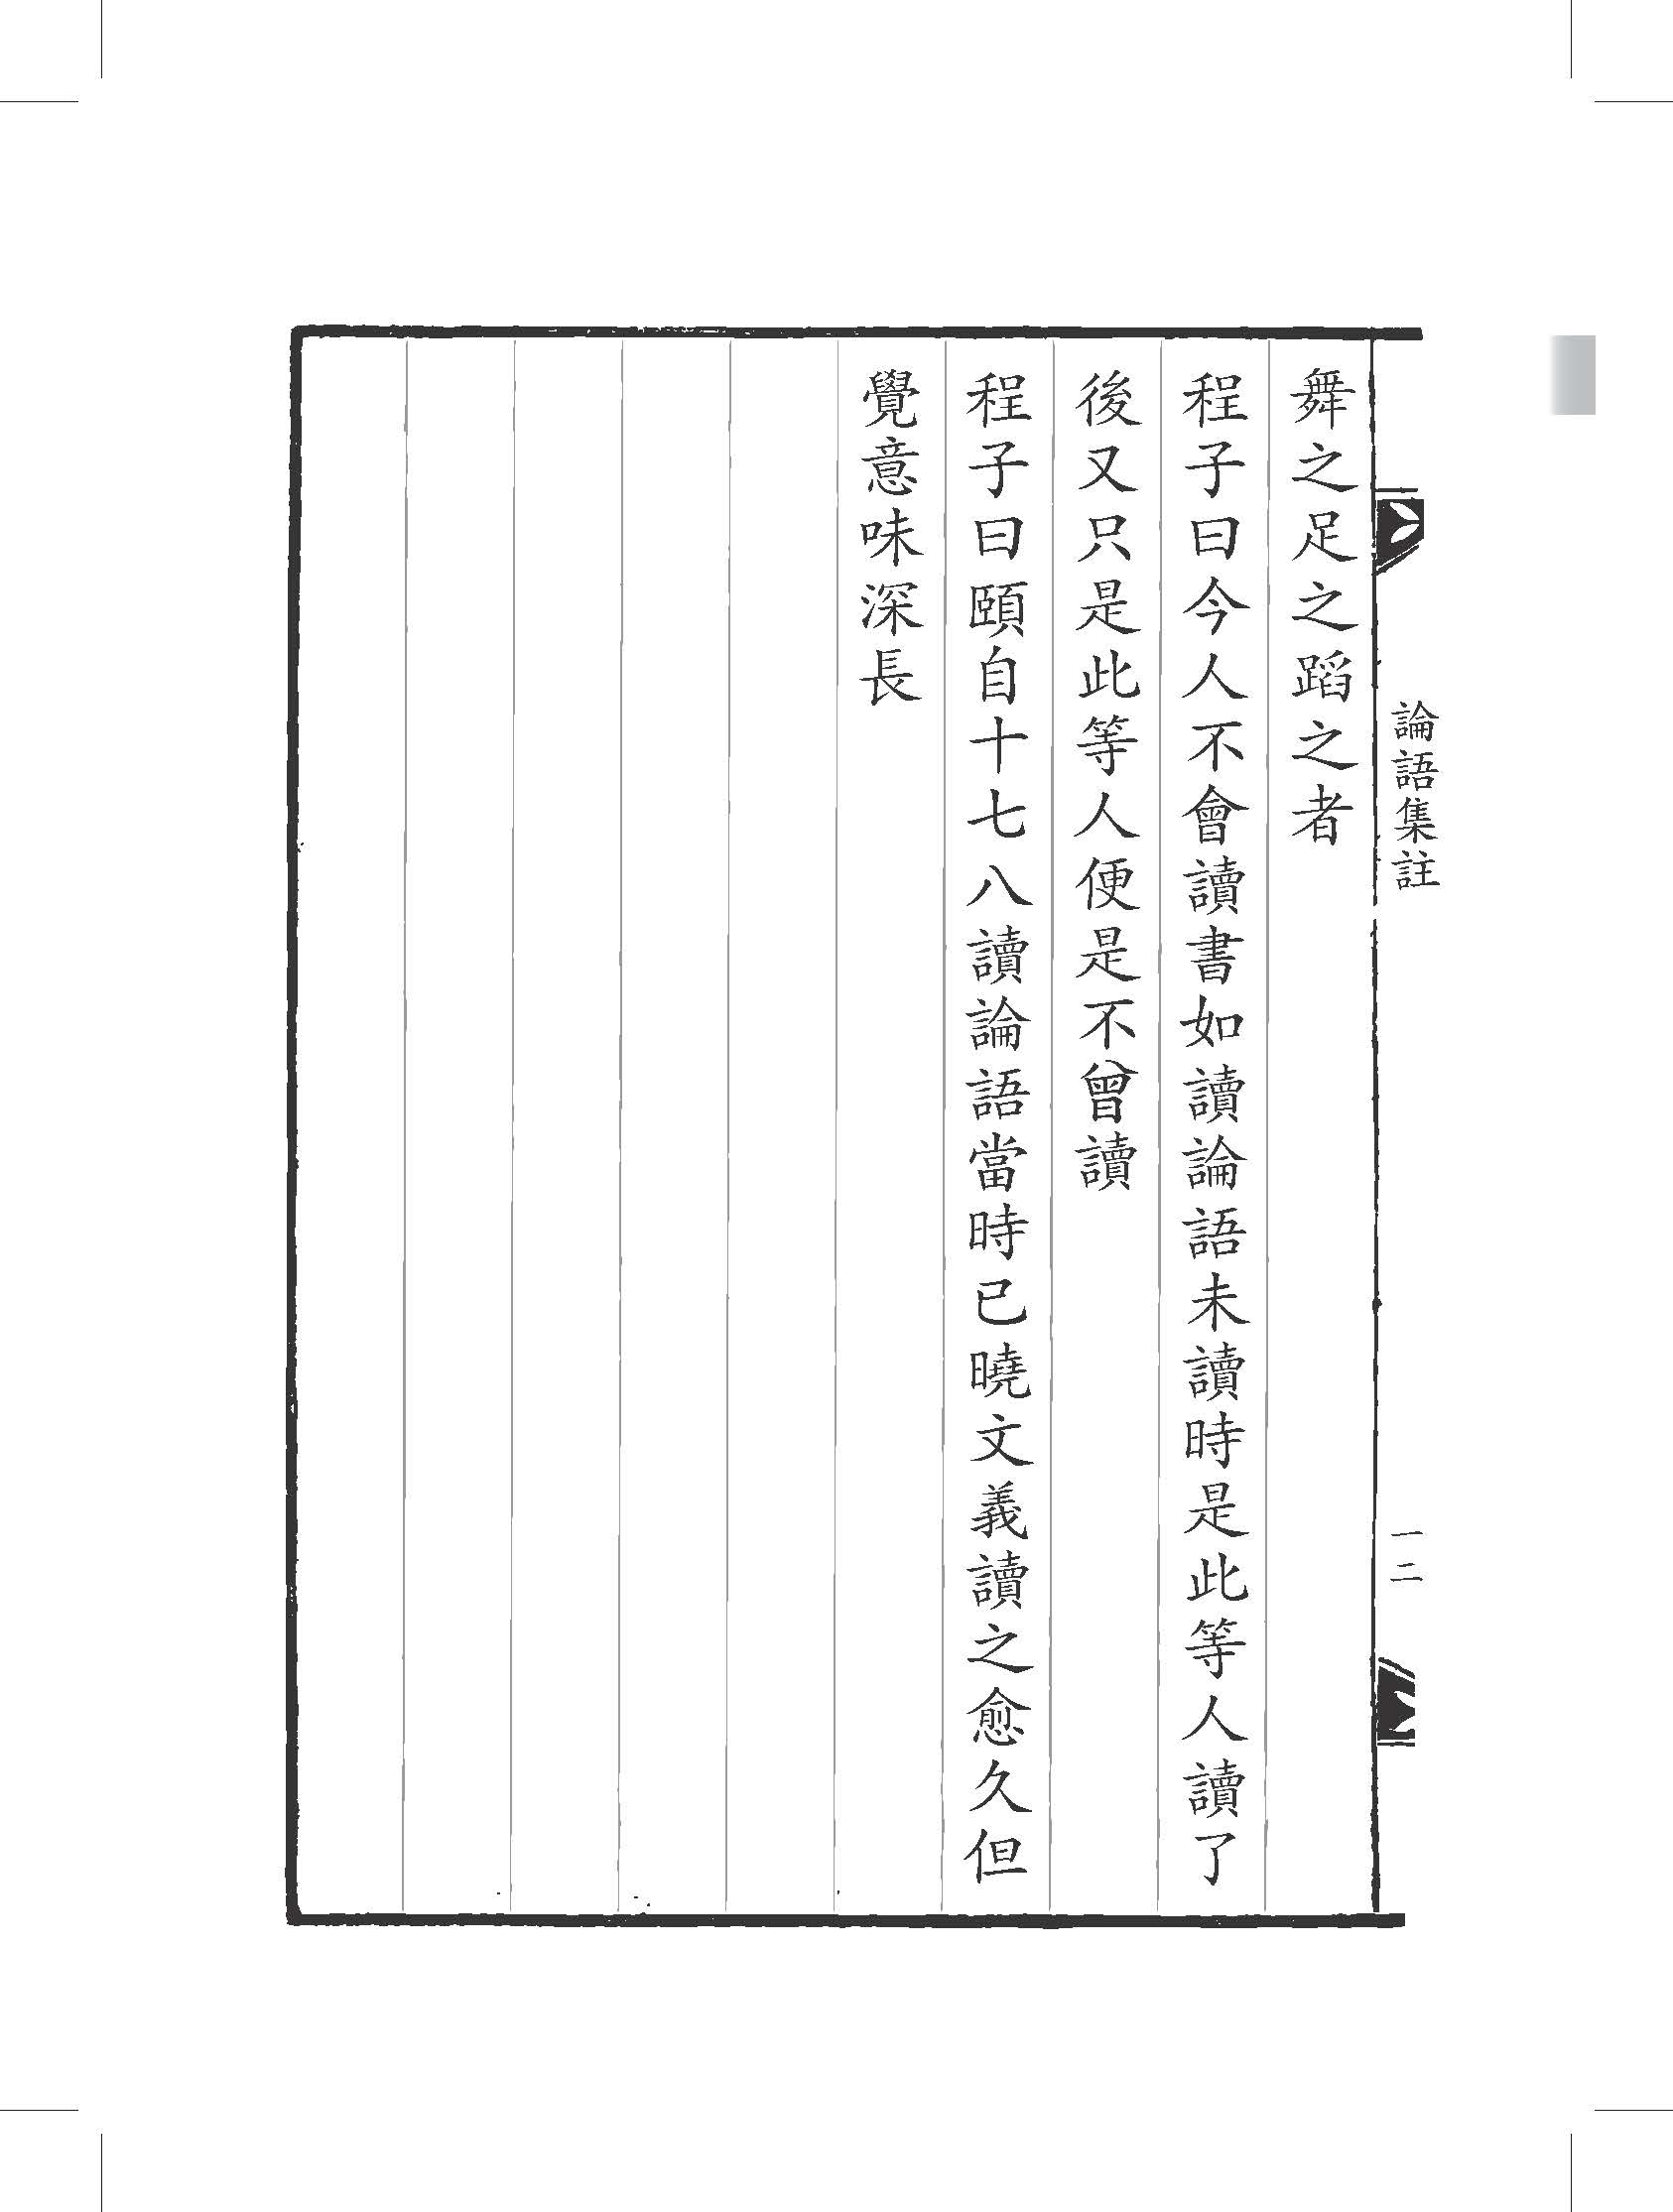 論語集註
一二
舞之足之蹈之者
程子曰今人不會讀書如讀論語未讀時是此等人讀了
後又只是此等人便是不曾讀
程子曰頤自十七八讀論語當時已曉文義讀之愈久但
覺意味深長